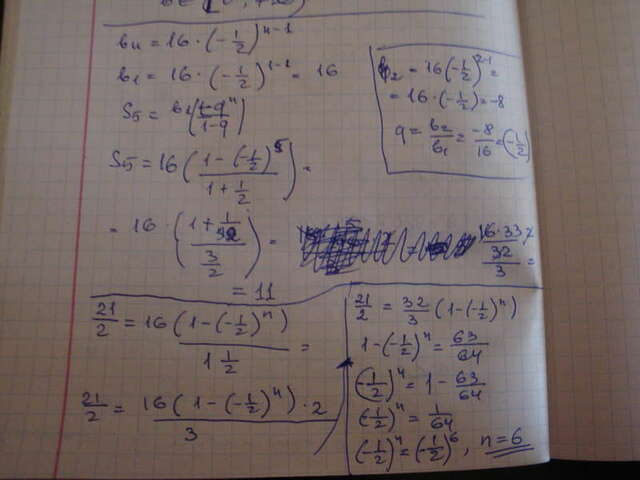 bₙ = 16 · (-1/2)ⁿ⁻¹
b₁ = 16 · (-1/2)¹⁻¹ = 16
S₅ = b₁(1-qⁿ / 1-q)
S₅ = 16 (1-(-1/2)⁵ / 1+1/2) =
= 16 · (1+1/32 / 3/2) =
16·33 / 32 / 3 =
= 11
b₂ = 16(-1/2)²⁻¹ =
= 16·(-1/2) = -8
q = b₂/b₁ = -8/16 = (-1/2)
21/2 = 16(1-(-1/2)ⁿ) / 1 1/2 =
21/2 = 16(1-(-1/2)ⁿ)·2 / 3
21/2 = 32/3 (1-(-1/2)ⁿ)
1-(-1/2)ⁿ = 63/64
(-1/2)ⁿ = 1-63/64
(-1/2)ⁿ = 1/64
(-1/2)ⁿ = (-1/2)⁶, n=6